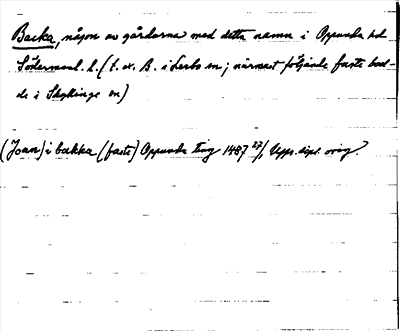 Backa, någon av gårdarna med detta namn i Oppunda hd
Södermanl. l. (t. ex. B. i Lerbo sn; närmast följande faste bod-
de i Skyttinge sn)
(Joan) i bakka (faste) Oppunda ting 1487 27/1 Upps. dipl. orig.